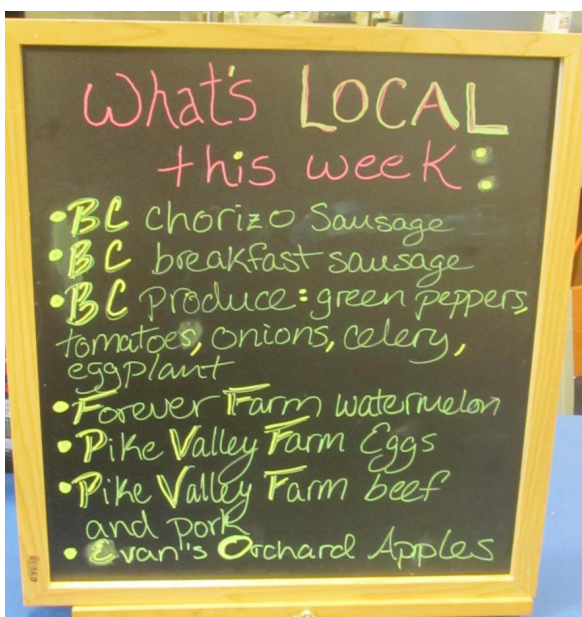 What's LOCAL
this week:
•BC chorizo Sausage
•BC breakfast sausage
•BC Produce: green peppers,
tomatoes, onions, celery,
eggplant
•Forever Farm watermelon
•Pike Valley Farm Eggs
•Pike Valley Farm beef
and pork
•Evan's Orchard Apples